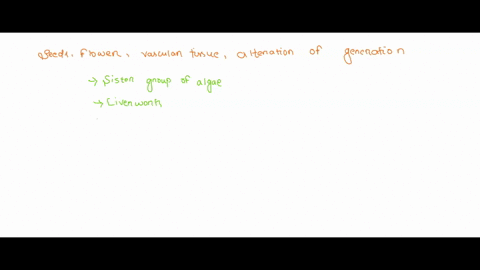 Seeds. Flower, vascular tissue, alteration of generation
→ Sister group of algae
→ Liverwork